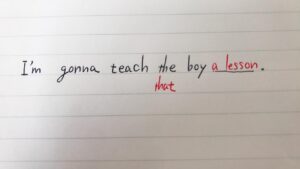 I'm gonna teach the boy a lesson.
that